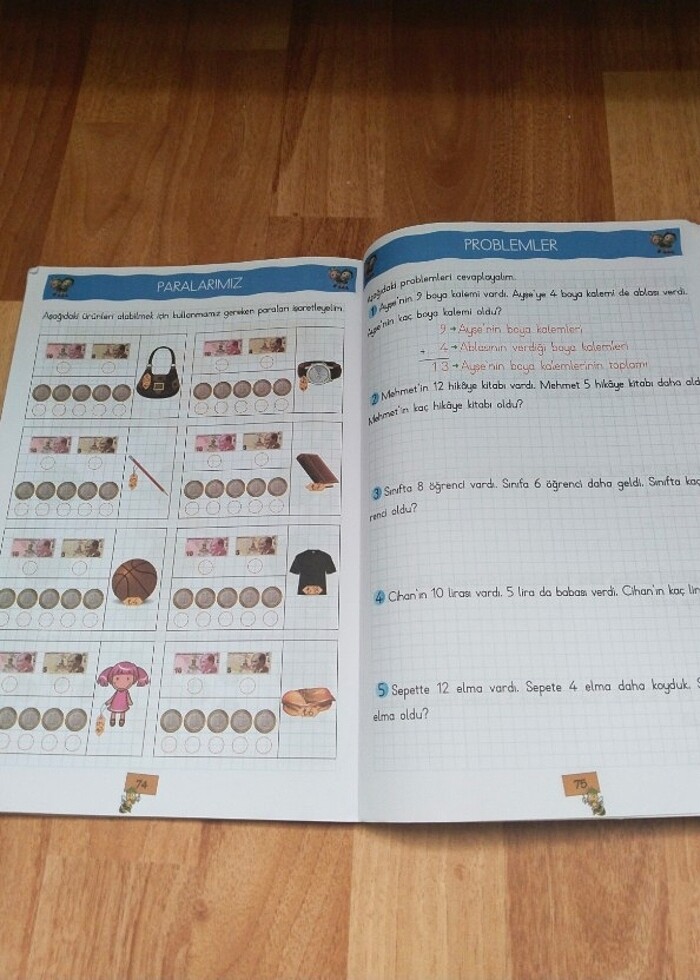 PARALARIMIZ
Aşağıdaki ürünleri alabilmek için kullanmamız gereken paraları işaretleyelim.
74
PROBLEMLER
Aşağıdaki problemleri cevaplayalım.
1 Ayşe'nin 9 boya kalemi vardı. Ayşe'ye 4 boya kalemi de ablası verdi.
Ayşe'nin kaç boya kalemi oldu?
9 → Ayşe'nin boya kalemleri
+ 4 → Ablasının verdiği boya kalemleri
13 → Ayşe'nin boya kalemlerinin toplamı
2 Mehmet'in 12 hikâye kitabı vardı. Mehmet 5 hikâye kitabı daha
Mehmet'in kaç hikâye kitabı oldu?
3 Sınıfta 8 öğrenci vardı. Sınıfa 6 öğrenci daha geldi. Sınıfta kaç
renci oldu?
4 Cihan'ın 10 lirası vardı. 5 lira da babası verdi. Cihan'ın kaç
5 Sepette 12 elma vardı. Sepete 4 elma daha koyduk.
elma oldu?
75